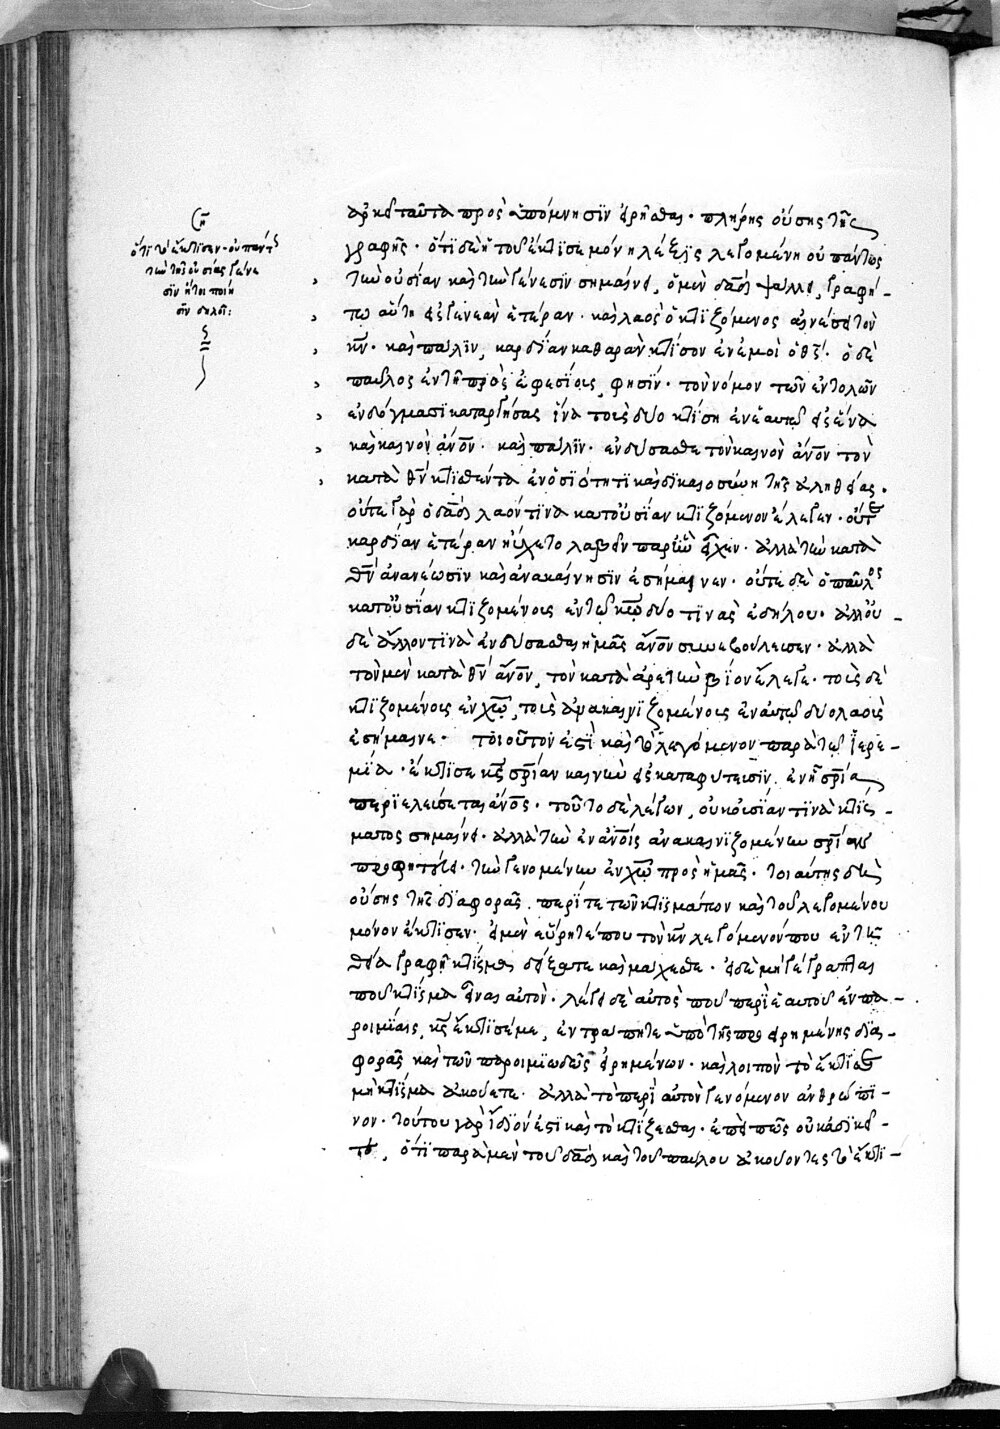 ση
ὅτι τὸ ἔκτισεν οὐ πάντως
τὴν τῆς οὐσίας γένε
σιν ἤτοι ποίη
σιν δηλοῖ:
ἀρκεῖ ταῦτα πρὸς ὑπόμνησϊν εἰρῆσθαι· πλήρης οὔσης τῆς
γραφῆς· ὅτι δὲ ἡ τοῦ ἔκτισε μόνη λέξις λεγομένη οὐ πάντως
τὴν οὐσίαν καὶ τὴν γένεσιν σημαίνει, ὁ μὲν δαδ ψάλλει, γραφή-
τω αὕτη εἰς γενεὰν ἑτέραν· καὶ λαὸς ὁ κτιζόμενος αἰνέσει τὸν
κν· καὶ πάλϊν, καρδίαν καθαρὰν κτίσον ἐν ἐμοὶ ὁ θς· ὁ δὲ
παῦλος ἐν τῇ πρὸς ἐφεσίοις, φησϊν· τὸν νόμον τῶν ἐντολῶν
ἐν δόγμασι καταργήσας ἵνα τοὺς δύο κτίσῃ ἐν ἑαυτῷ εἰς ἕνα
καὶ καινὸν ἄνον· καὶ πάλϊν· ἐνδύσασθε τὸν καινὸν ἄνον τὸν
κατὰ θν κτισθέντα ἐν ὁσιότητι καὶ δικαιοσύνῃ τῆς ἀληθείας·
οὔτε γὰρ ὁ δαδ λαόν τινα κατ' οὐσίαν κτιζόμενον ἔλεγεν· οὔτε
καρδίαν ἑτέραν ηὔχετο λαβεῖν παρ' ἣν εἶχεν· ἀλλὰ τὴν κατὰ
θν ἀνανέωσϊν καὶ ἀνακαίνησϊν ἐσήμαινεν· οὔτε δὲ ὁ παῦλος
κατ' οὐσίαν κτιζομένους ἐν τῷ κω δύο τινὰς ἐδήλου· ἀλλ' οὐ-
δὲ ἄλλον τινὰ ἐνδύσασθαι ἡμᾶς ἄνον συνεβούλευσεν· ἀλλὰ
τὸν μὲν κατὰ θν ἄνον, τὸν κατὰ ἀρετὴν βίον ἔλεγε· τοὺς δὲ
κτιζομένους ἐν χω, τοὺς ἀνακαινιζομένους ἐν αὐτῷ δύο λαοὺς
ἐσήμαινε· τοιοῦτον ἐστὶ καὶ τὸ λεγόμενον παρὰ τῷ ἱερε-
μία· ἔκτισε κς σρίαν καινὴν εἰς καταφύτευσϊν, ἐν ἧ σρία
περιελεύσεται ἄνος· τοῦτο δὲ λέγων, οὐκ οὐσίαν τινὰ κτίσ-
ματος σημαίνει· ἀλλὰ τὴν ἐν ἀνοις ἀνακαινιζομένην σρίαν
προφητεύει· τὴν γενομένην ἐν χω πρὸς ἡμᾶς· τοιαύτης δὲ
οὔσης τῆς διαφορᾶς περί τε τῶν κτισμάτων καὶ τοῦ λεγομένου
μόνον ἔκτισεν· εἰ μὲν εὕρητέ που τὸν κν λεγόμενόν που ἐν τῇ
θεία γραφῇ κτίσμα δείξατε καὶ μάχεσθε· εἰ δὲ μὴ γέγραπται
που κτίσμα εἶναι αὐτὸν· λέγει δὲ αὐτός που περὶ ἑαυτοῦ ἐν πα-
ροιμίαις, κς ἔκτισέ με, ἐντράπητε ὑπὸ τῆς προειρημένης δια-
φορᾶς καὶ τῶν παροιμιωδῶς εἰρημένων· καὶ λοιπὸν τὸ ἔκτισε
μὴ κτίσμα ἀκούετε· ἀλλὰ τὸ περὶ αὐτὸν γενόμενον ἀνθρώπι-
νον· τούτου γὰρ ἴδϊόν ἐστι καὶ τὸ κτίζεσθαι· ἐπεὶ πῶς οὐκ ἀδικεῖ-
τε, ὅτι παρὰ μὲν τοῦ δαδ καὶ τοῦ παύλου ἀκούοντες τὸ ἔκτι-